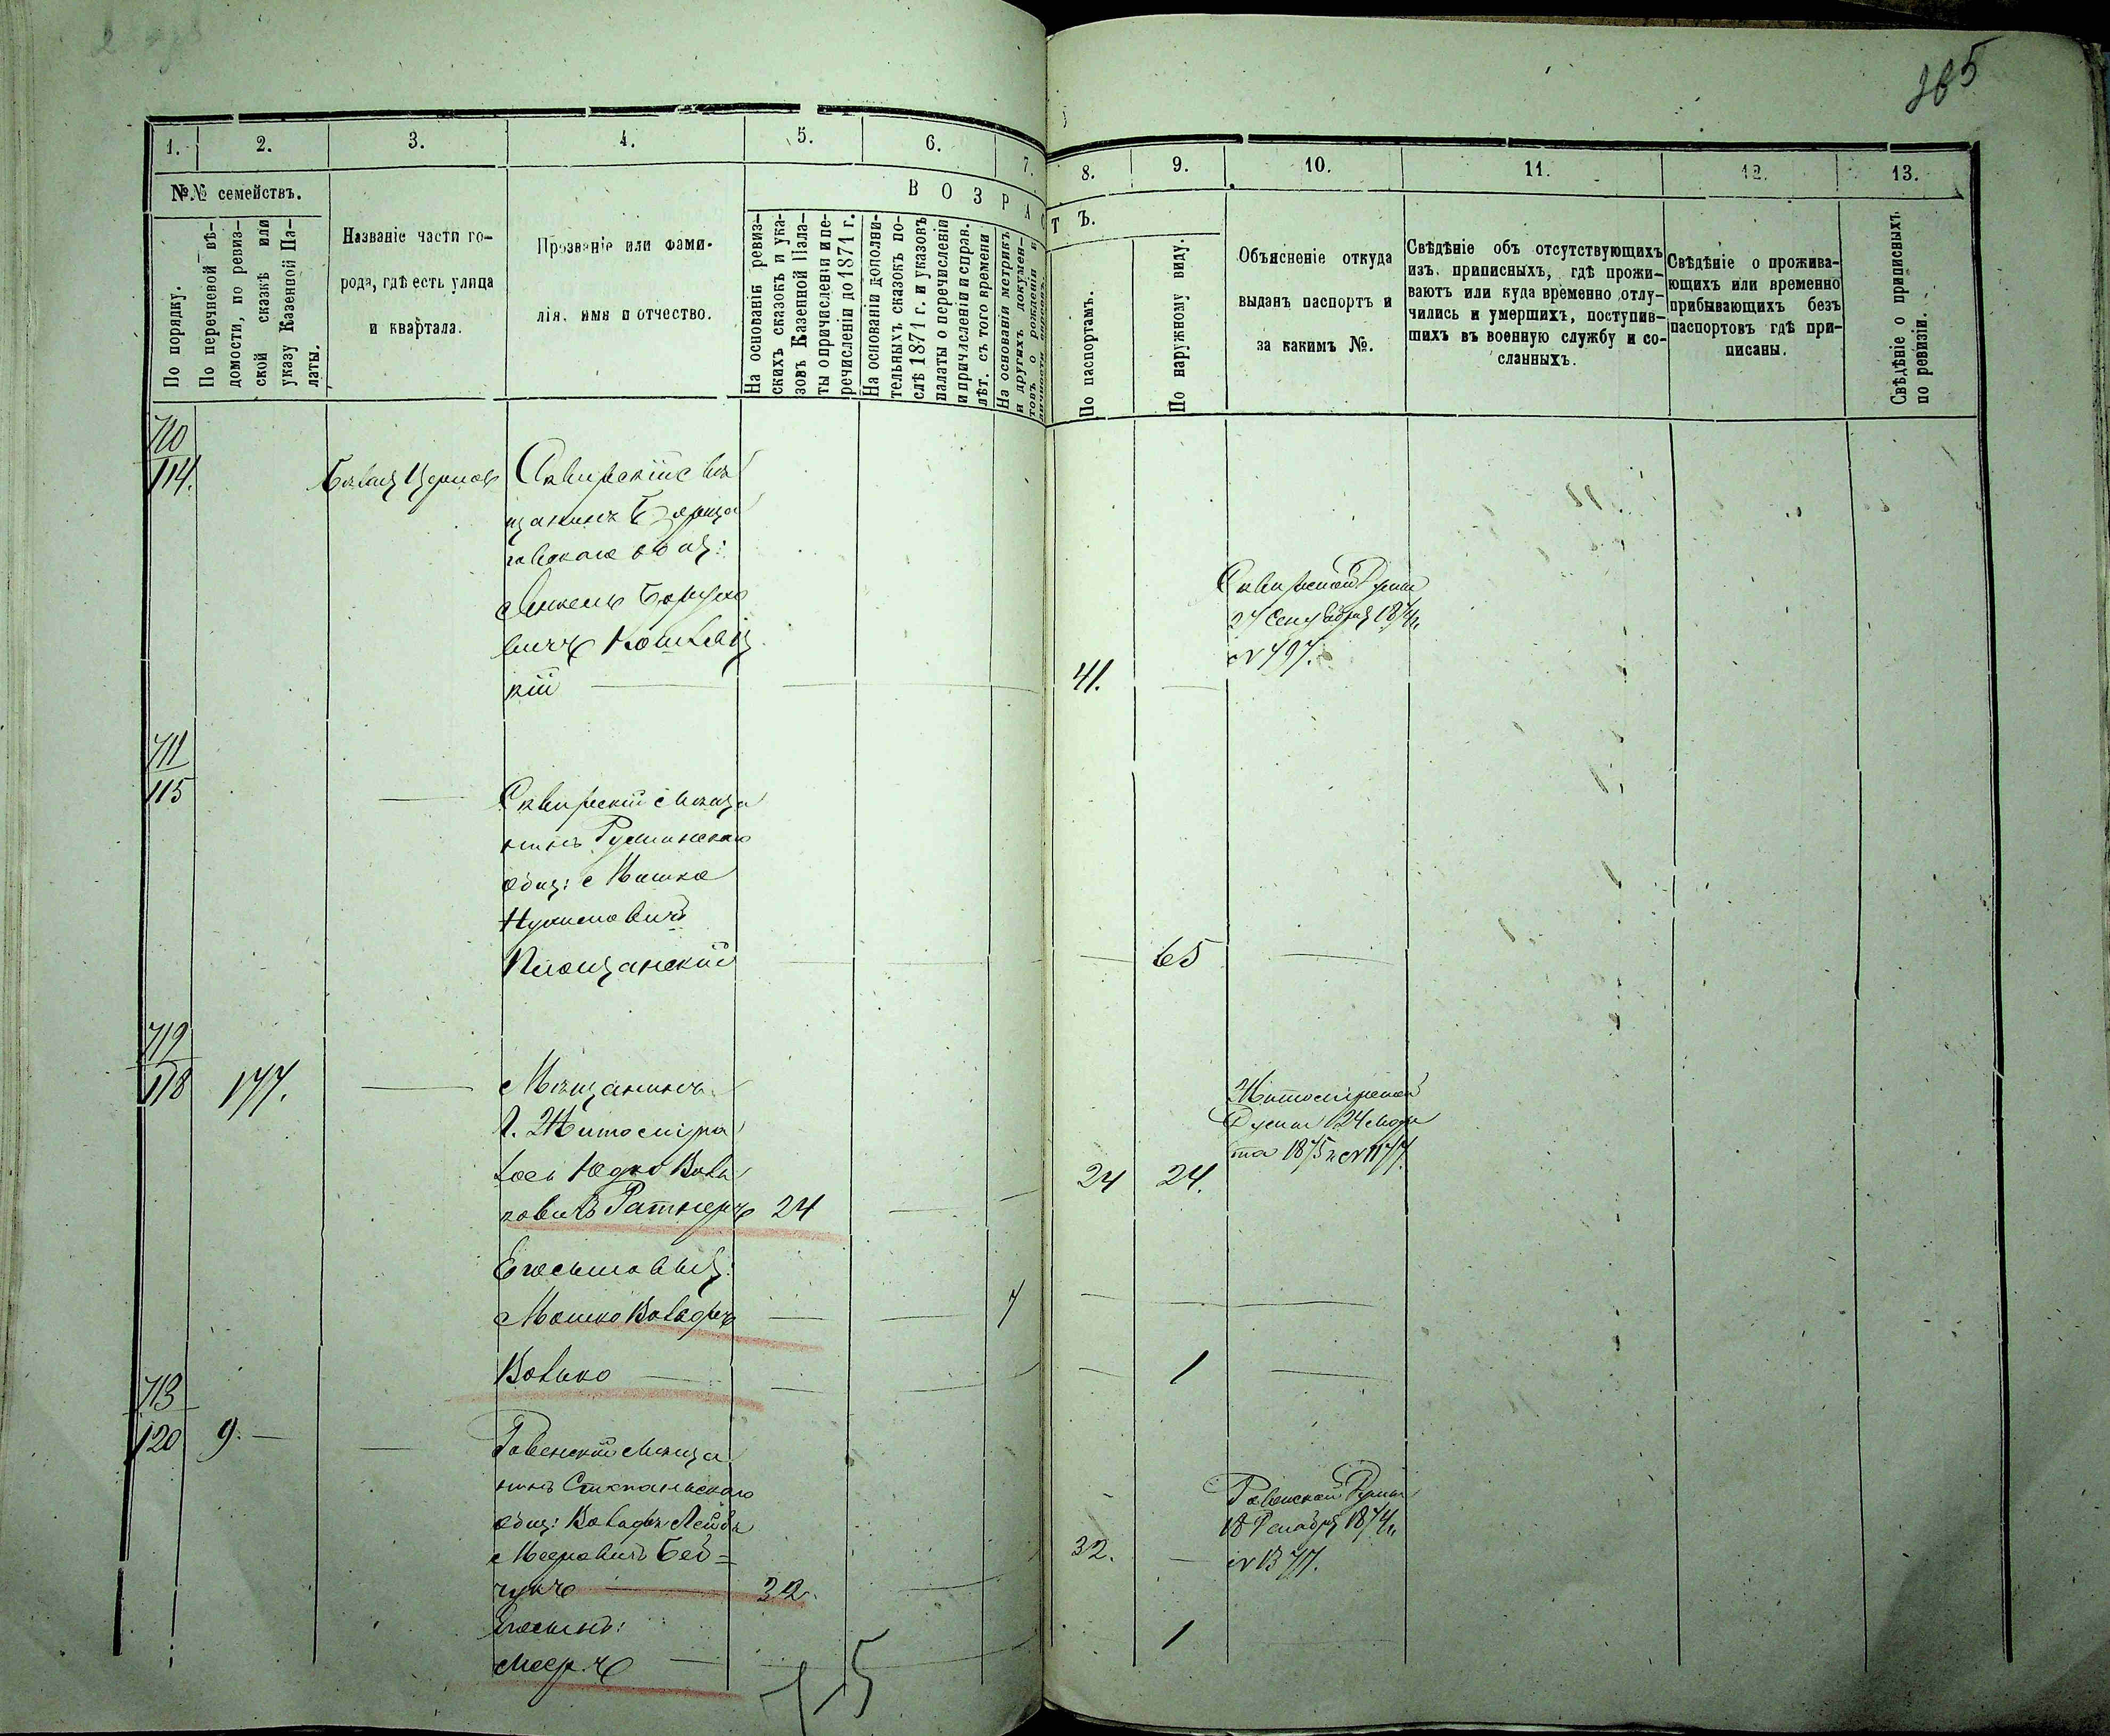 365
1. 2. 3. 4. 5. 6. 7. 8. 9. 10. 11. 12. 13.
№№ семействъ.
В О З Р А С Т Ъ.
По порядку.
По перечневой вѣ-
домости, по ревиз-
ской сказкѣ или
указу Казенной Па-
латы.
Названіе части го-
рода, гдѣ есть улица
и квартала.
Прозваніе или фами-
лія, имя и отчество.
На основаніи ревиз-
скихъ сказокъ и ука-
зовъ Казенной Пала-
ты о причисленіи и пе-
речисленіи до 1871 г.
На основаніи дополни-
тельныхъ сказокъ по-
слѣ 1871 г. и указовъ
палаты о перечисленіи
и причисленіи и справ.
лѣт. съ того времени
На основаніи метрикъ
и другихъ докумен-
товъ о рожденіи и
По паспортамъ.
По наружному виду.
Объясненіе откуда
выданъ паспортъ и
за какимъ №.
Свѣдѣніе объ отсутствующихъ
изъ приписныхъ, гдѣ прожи-
ваютъ или куда временно отлу-
чились и умершихъ, поступив-
шихъ въ военную службу и со-
сланныхъ.
Свѣдѣніе о прожива-
ющихъ или временно
прибывающихъ безъ
паспортовъ гдѣ при-
писаны.
Свѣдѣніе о приписныхъ
по ревизіи.
710
114.
Бѣлая Церковь
Сквирскій мѣ
щанинъ
общ:
Борухо
вичъ
кій
41.
Сквирской Думы
27 Сентября 1874
№ 797.
711
115
Сквирскій мѣща
нинъ Ружинскаго
общ: Мошко
Нухимовичъ
Площанскій
65
712
118
177.
Мѣщанинъ
г. Житоміра
Іось Юдко Воль
ковичъ Ратнеръ 24
24 24.
Житомірской
Думы 24 мар
та 1875 № 1177.
Его сыновья:
Мошко Вольфъ 7
Волько 1
713
120
9.
Ровенскій мѣща
нинъ Степаньскаго
общ: Вольфъ Лейба
Мееровичъ Бей=
чукъ 32.
32.
Ровенской Думы
18 Декабря 1874
№ 13717.
Его сынъ:
Мееръ 1
15